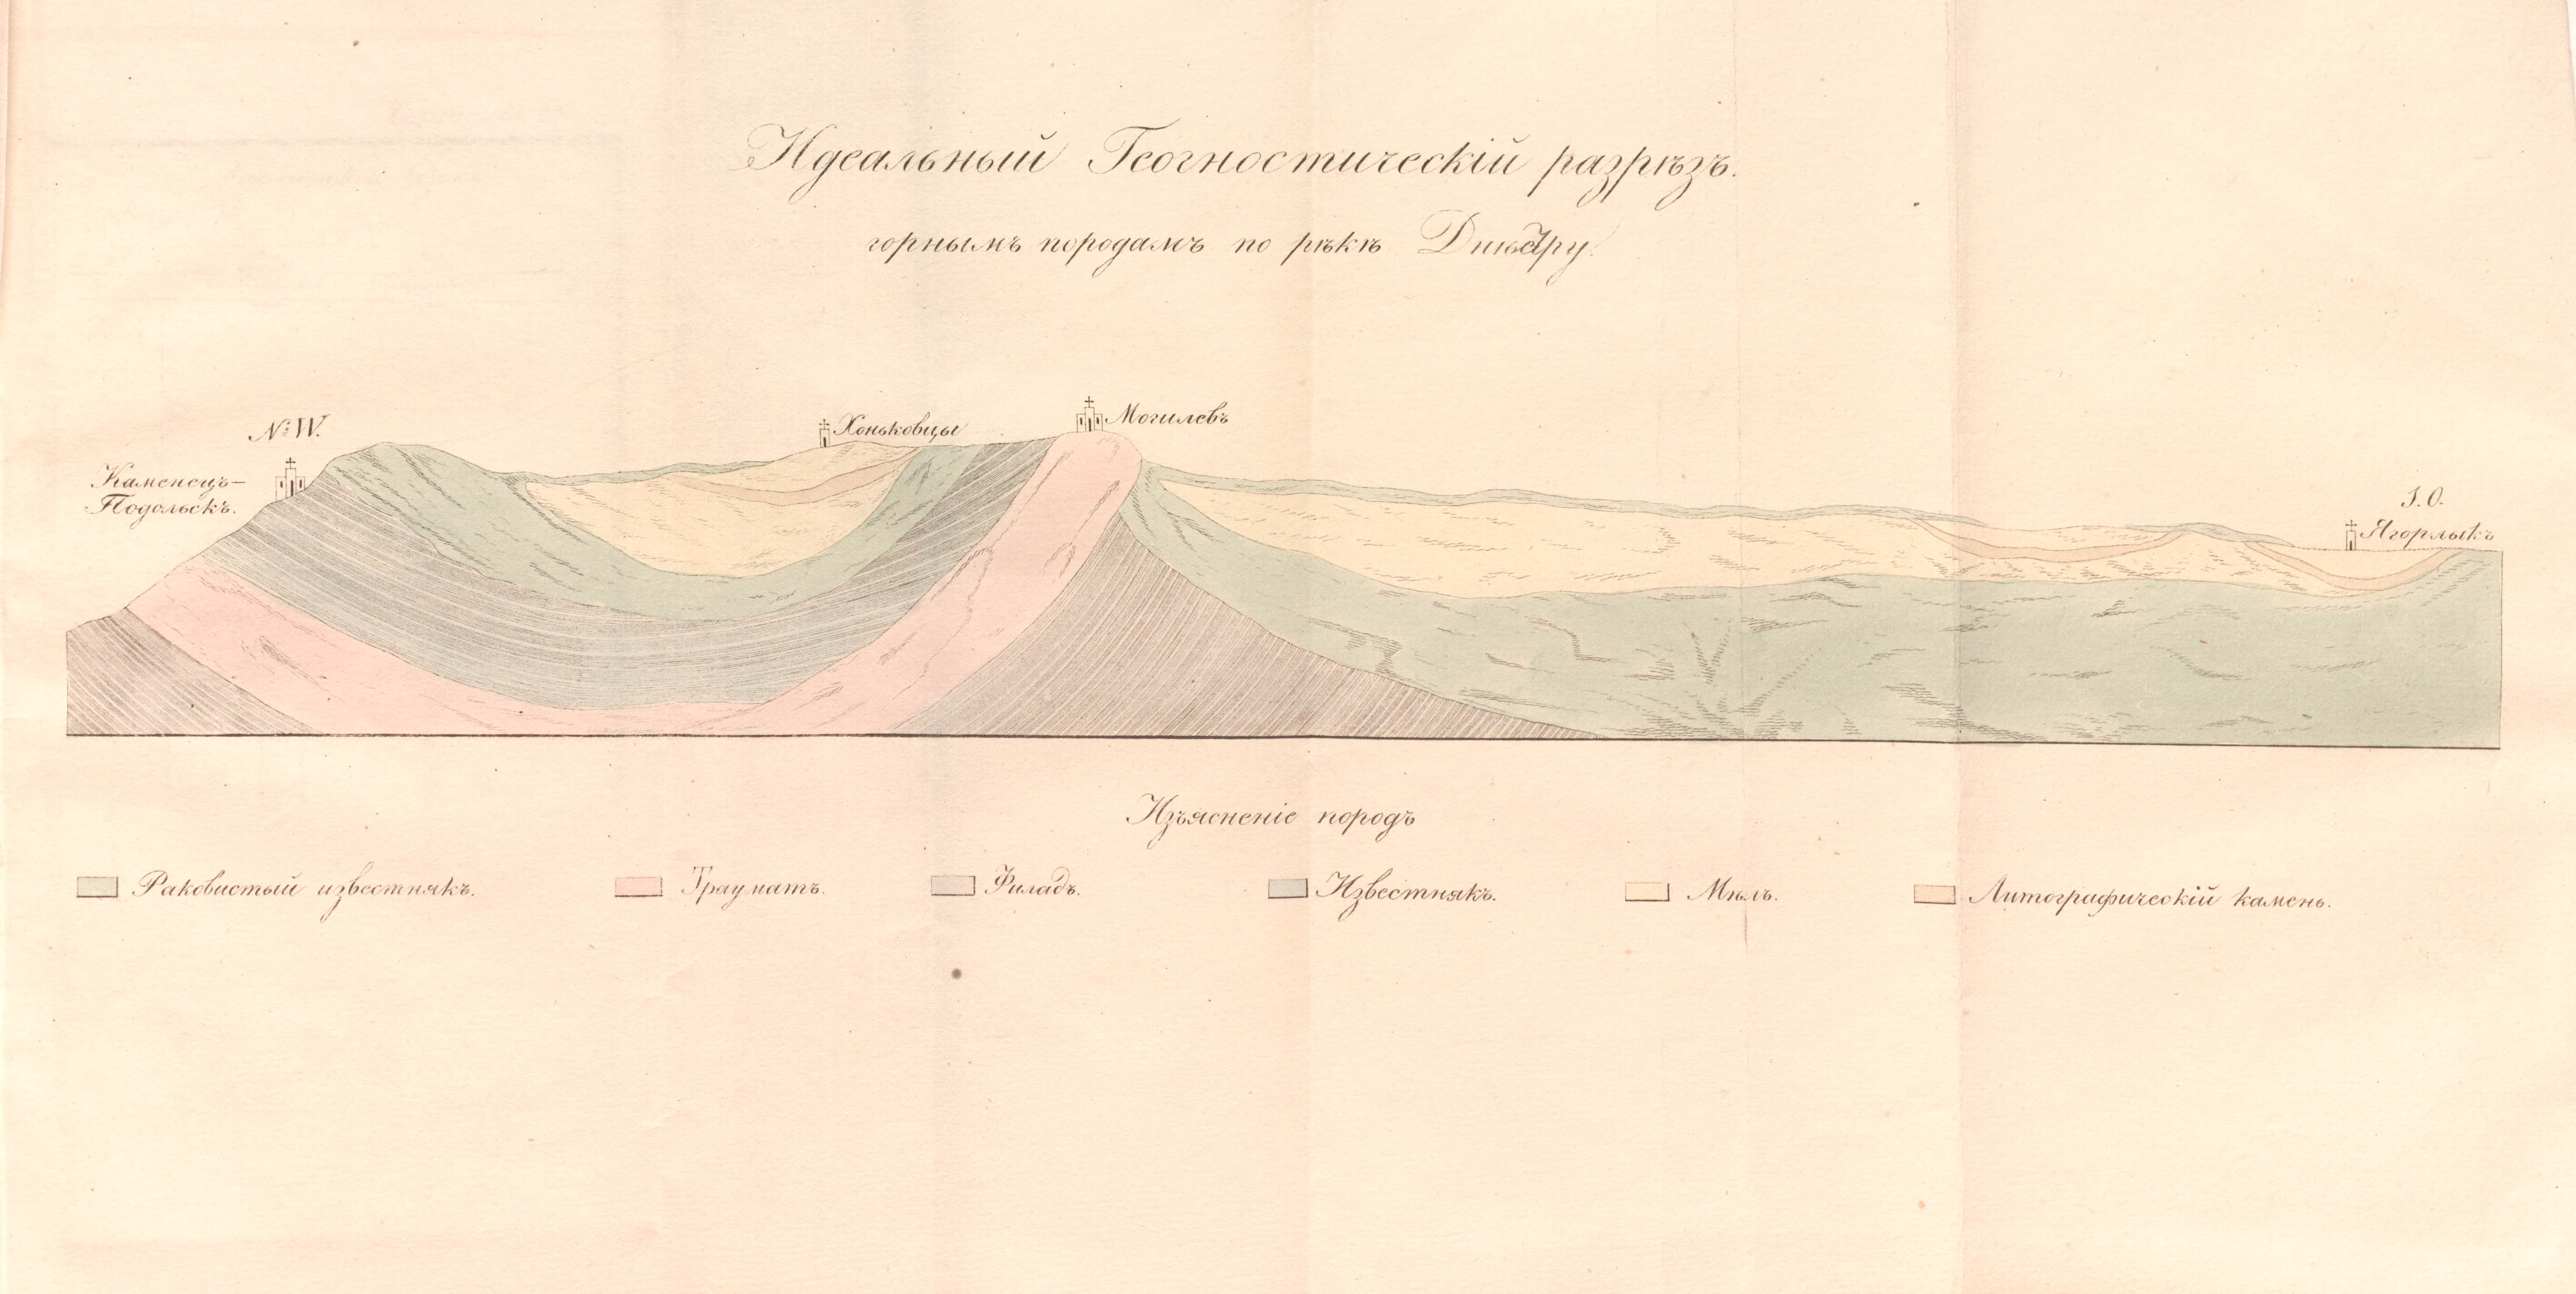 Идеальный Геогностическій разрѣзъ.
горнымъ породамъ по рѣкѣ Днѣстру.
N: W.
Каменецъ-
Подольскъ.
Хоньковцы
Могилевъ
J. O.
Ягорлыкъ
Изъясненіе породъ
Раковистый известнякъ.
Трауматъ.
Филадъ.
Известнякъ.
Мѣлъ.
Литографическій камень.